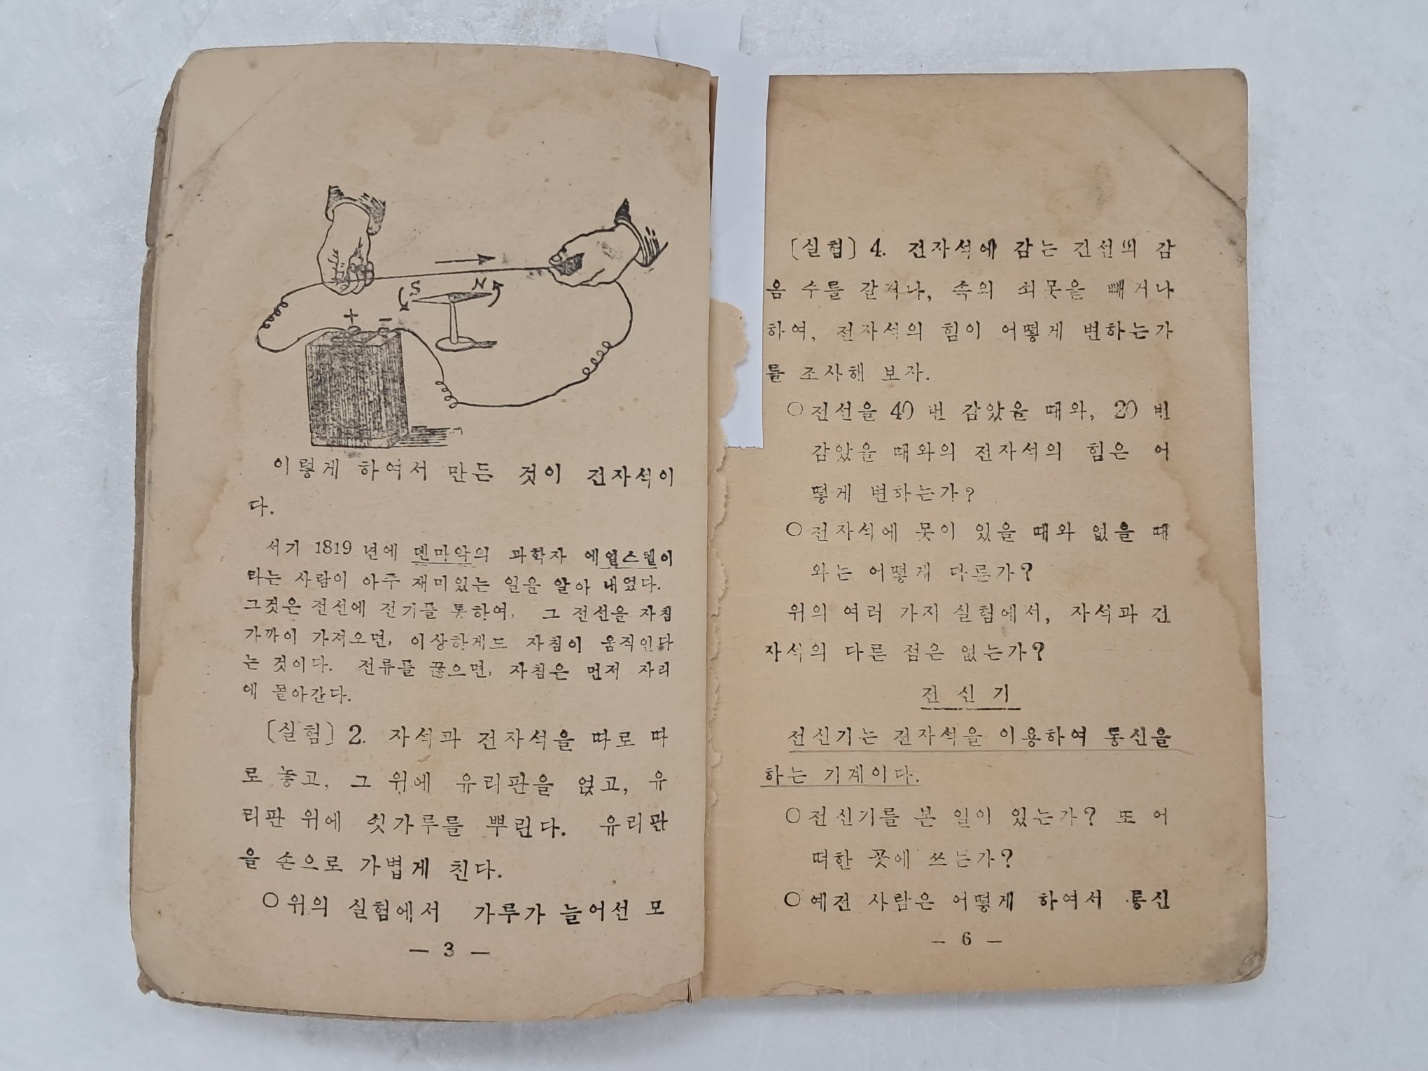 S N
+ −
이렇게 하여서 만든 것이 전자석이
다.
서기 1819 년에 덴마악의 과학자 에얼스텔이
라는 사람이 아주 재미있는 일을 알아 내었다.
그것은 전선에 전기를 통하여, 그 전선을 자침
가까이 가져오면, 이상하게도 자침이 움직인다
는 것이다. 전류를 끊으면, 자침은 먼저 자리
에 돌아간다.
〔실험〕 2. 자석과 전자석을 따로 따
로 놓고, 그 위에 유리판을 얹고, 유
리판 위에 쇳가루를 뿌린다. 유리판
을 손으로 가볍게 친다.
○위의 실험에서 가루가 늘어선 모
— 3 —
〔실험〕 4. 전자석에 감는 전선의 감
음 수를 갈거나, 속의 쇠못을 빼거나
하여, 전자석의 힘이 어떻게 변하는가
를 조사해 보자.
○전선을 40 번 감았을 때와, 20 번
감았을 때와의 전자석의 힘은 어
떻게 변하는가?
○전자석에 못이 있을 때와 없을 때
와는 어떻게 다른가?
위의 여러 가지 실험에서, 자석과 전
자석의 다른 점은 없는가?
전 신 기
전신기는 전자석을 이용하여 통신을
하는 기계이다.
○전신기를 본 일이 있는가? 또 어
떠한 곳에 쓰는가?
○예전 사람은 어떻게 하여서 통신
— 6 —